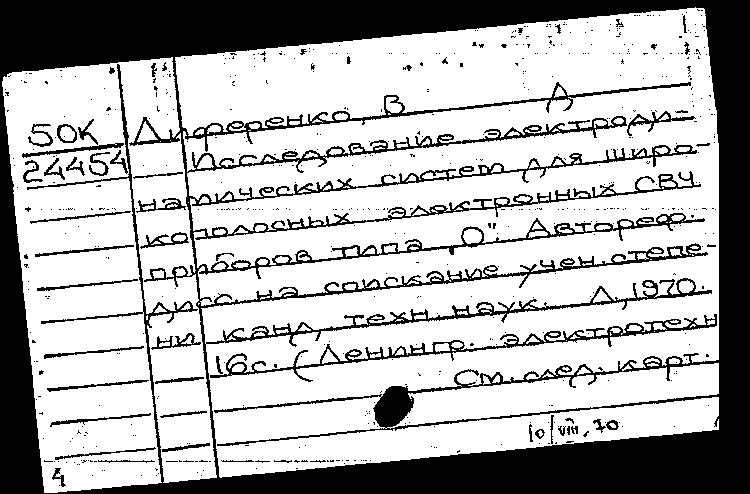 50К Лиференко, В Д
24454 Исследование электроди-
намических систем для широ-
кополосных электронных СВЧ
приборов типа „О". Автореф.
дисс. на соискание учен. степе-
ни канд, техн. наук. Л, 1970.
16с. (Ленингр. электротехн
См. след. карт.
10/VIII.70
4